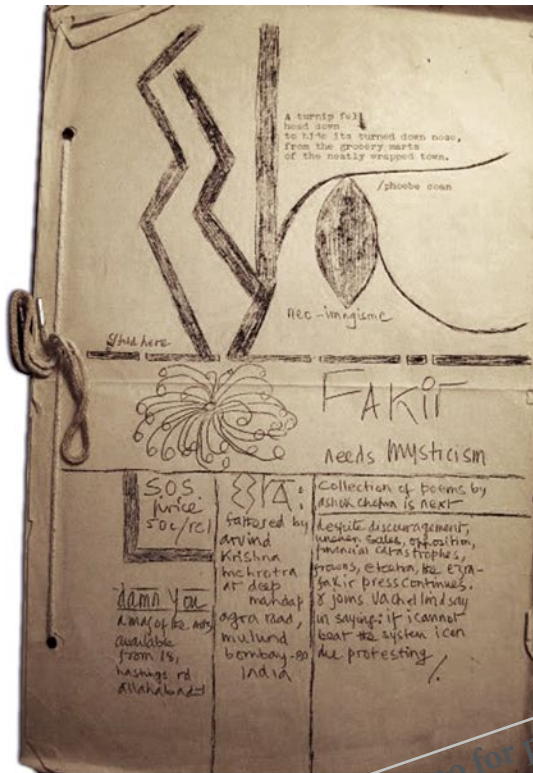 A turnip fell
head down
to hide its turned down nose,
from the grocery marts
of the neatly wrapped town.
/phoebe coan
neo-imagisme
fold here
FAKIR
needs mysticism
S.O.S.
price
50c/re1
damn you
a mag of the arts
available
from 18,
hastings rd
allahabad-1
EZRA:
fathered by
arvind
krishna
mehrotra
at deep
mandap
agra road,
mulund
bombay-80
India
Collection of poems by
ashok chopra is next
despite discouragement,
uneven sales, opposition,
financial catastrophes,
frowns, etcetra, the ezra-
fakir press continues.
& joins vachel lindsay
in saying: if i cannot
beat the system i can
die protesting
to for